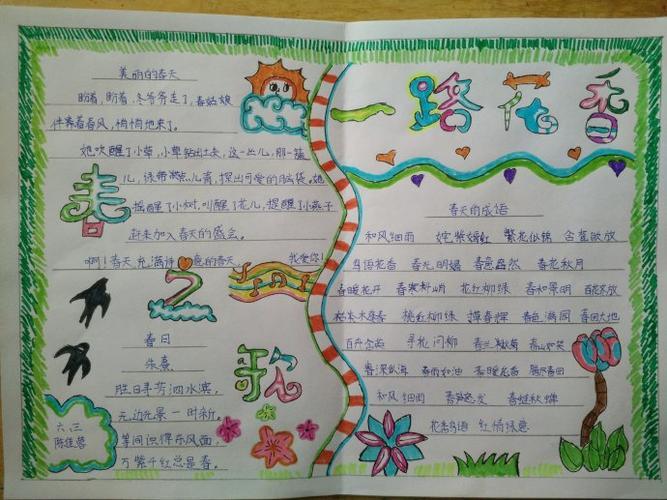 美丽的春天
盼着,盼着,冬爷爷走了,春姑娘
伴着春风,悄悄地来了。
她吹醒了小草,小草钻出土来,这一丛儿,那一簇
儿,探出可爱的脑袋。她
摇醒了小树,叫醒了花儿,捉醒了小燕子
赶来加入春天的盛会。
啊!春天,充满诗意的春天 我爱你!
春之歌
春日
朱熹
胜日寻芳泗水滨,
无边光景一时新。
等闲识得东风面,
万紫千红总是春。
六、三
一路花香
春天的成语
和风细雨 姹紫嫣红 繁花似锦 含苞欲放
鸟语花香 春光明媚 春意盎然 春花秋月
春暖花开 春寒料峭 花红柳绿 春和景明 百花齐放
桃红柳绿 春色满园 春回大地
百卉含英 寻花问柳 春兰秋菊 春山如笑
春深似海 春雨如油 春暖花香
和风细雨 春笋怒发 春蛙秋蝉
花香鸟语 红情绿意